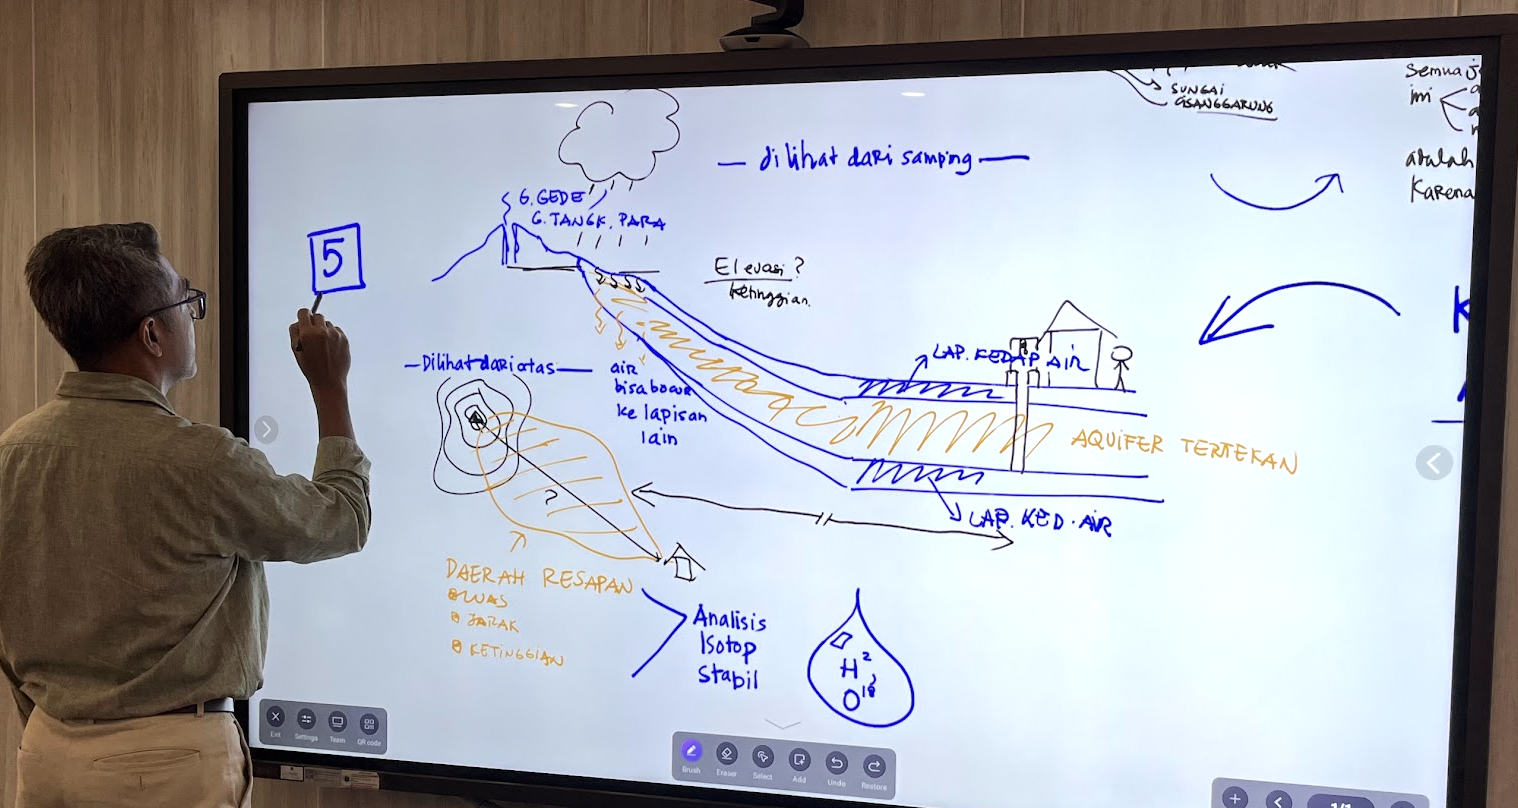 SUNGAI
CISANGGARUNG
Semua
ini
adalah
karena
— dilihat dari samping —
G. GEDE
G. TANGK. PARA
5
Elevasi?
ketinggian.
LAP. KEDAP AIR
— Dilihat dari atas —
air
bisa bocor
ke lapisan
lain
AQUIFER TERTEKAN
?
LAP. KED. AIR
DAERAH RESAPAN
LUAS
JARAK
KETINGGIAN
Analisis
Isotop
Stabil
H²,
O¹⁸
Exit
Settings
Team
QR code
Brush
Eraser
Select
Add
Undo
Restore
1/1